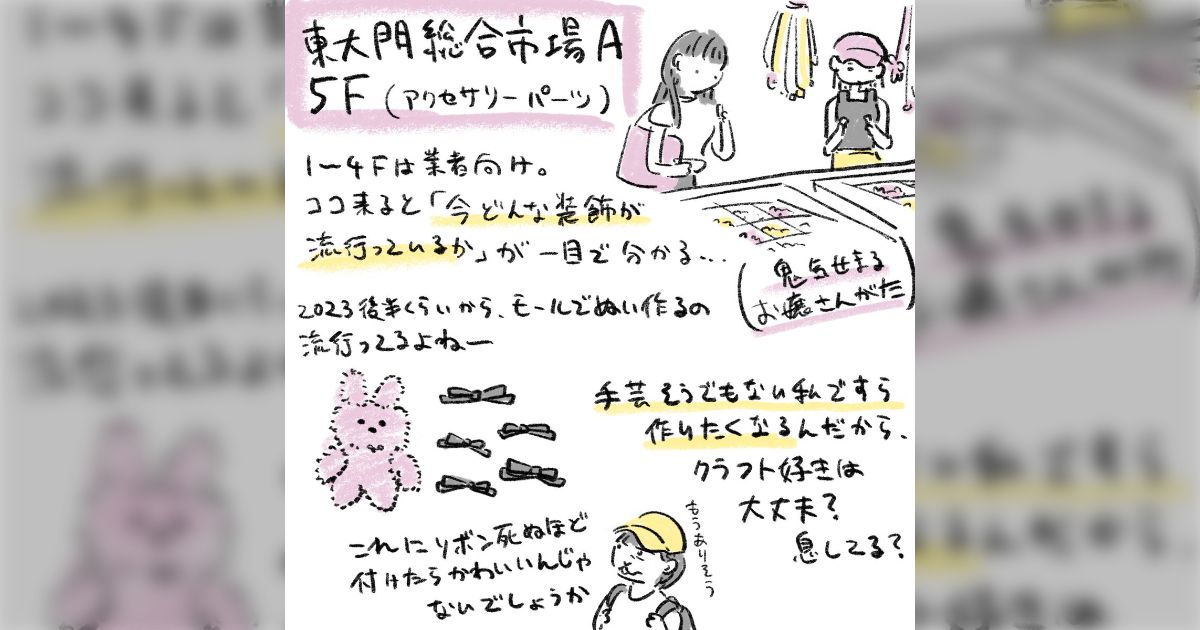 東大門総合市場A
5F(アクセサリーパーツ)
1〜4Fは業者向け。
ココ来ると「今どんな装飾が
流行っているか」が一目で分かる...
(鬼気せまる
お嬢さんがた)
2023後半くらいから、モールでぬい作るの
流行ってるよねー
手芸そうでもない私ですら
作りたくなるんだから、
クラフト好きは
大丈夫?
息してる?
これにリボン死ぬほど
付けたらかわいいんじゃ
ないでしょうか
もうありそう